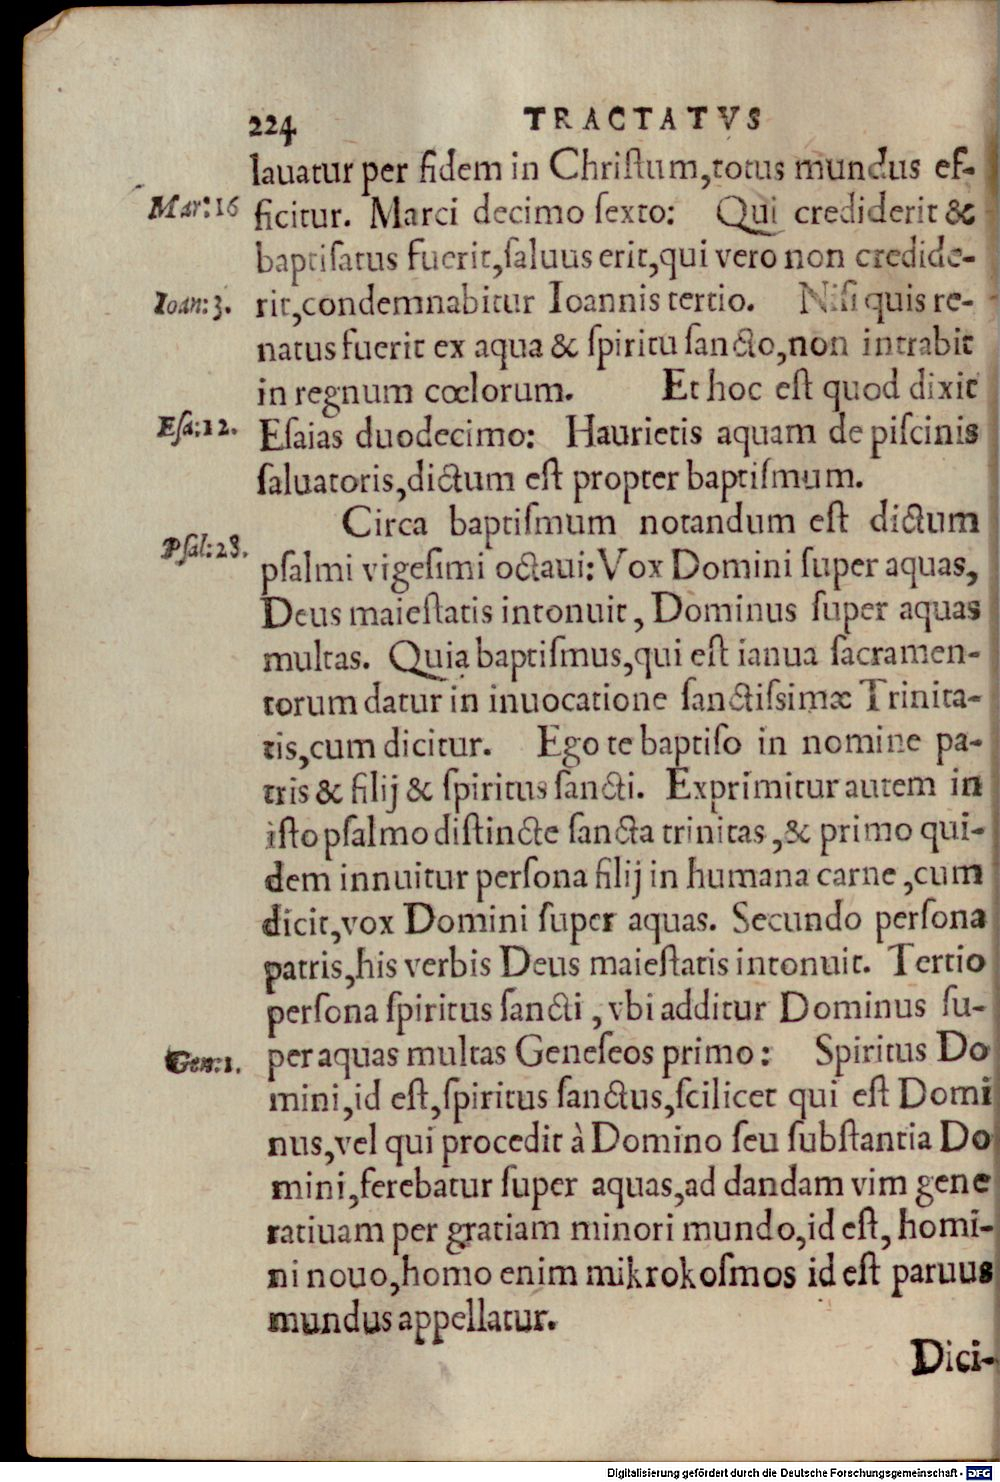 224 TRACTATVS
lauatur per fidem in Christum,totus mundus ef-
Mar:16 ficitur. Marci decimo sexto: Qui crediderit &
baptisatus fuerit,saluus erit,qui vero non credide-
Ioan:3. rit,condemnabitur Ioannis tertio. Nisi quis re-
natus fuerit ex aqua & spiritu sancto,non intrabit
in regnum cœlorum. Et hoc est quod dixit
Esa:12. Esaias duodecimo: Haurietis aquam de piscinis
saluatoris,dictum est propter baptismum.
Circa baptismum notandum est dictum
Psal:28. psalmi vigesimi octaui: Vox Domini super aquas,
Deus maiestatis intonuit, Dominus super aquas
multas. Quia baptismus,qui est ianua sacramen-
torum datur in inuocatione sanctissimæ Trinita-
tis,cum dicitur. Ego te baptiso in nomine pa-
tris & filij & spiritus sancti. Exprimitur autem in
isto psalmo distincte sancta trinitas,& primo qui-
dem innuitur persona filij in humana carne,cum
dicit,vox Domini super aquas. Secundo persona
patris,his verbis Deus maiestatis intonuit. Tertio
persona spiritus sancti, vbi additur Dominus su-
Gen:1. per aquas multas Geneseos primo: Spiritus Do
mini,id est,spiritus sanctus,scilicet qui est Domi
nus,vel qui procedit à Domino seu substantia Do
mini,ferebatur super aquas,ad dandam vim gene
ratiuam per gratiam minori mundo,id est, homi-
ni nouo,homo enim mikrokosmos id est paruus
mundus appellatur.
Dici-
Digitalisierung gefördert durch die Deutsche Forschungsgemeinschaft - DFG